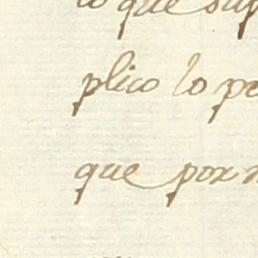 lo que sup
plico lo pe
que por n